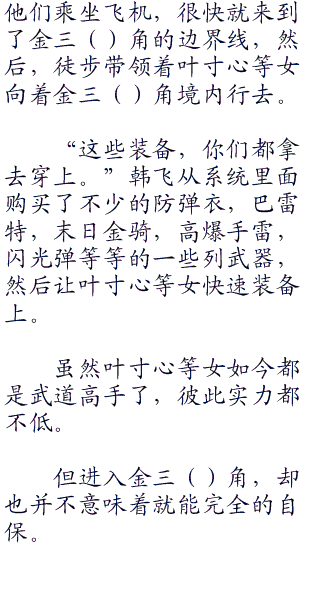 他们乘坐飞机，很快就来到
了金三（）角的边界线，然
后，徒步带领着叶寸心等女
向着金三（）角境内行去。
“这些装备，你们都拿
去穿上。”韩飞从系统里面
购买了不少的防弹衣，巴雷
特，末日金骑，高爆手雷，
闪光弹等等的一些列武器，
然后让叶寸心等女快速装备
上。
虽然叶寸心等女如今都
是武道高手了，彼此实力都
不低。
但进入金三（）角，却
也并不意味着就能完全的自
保。